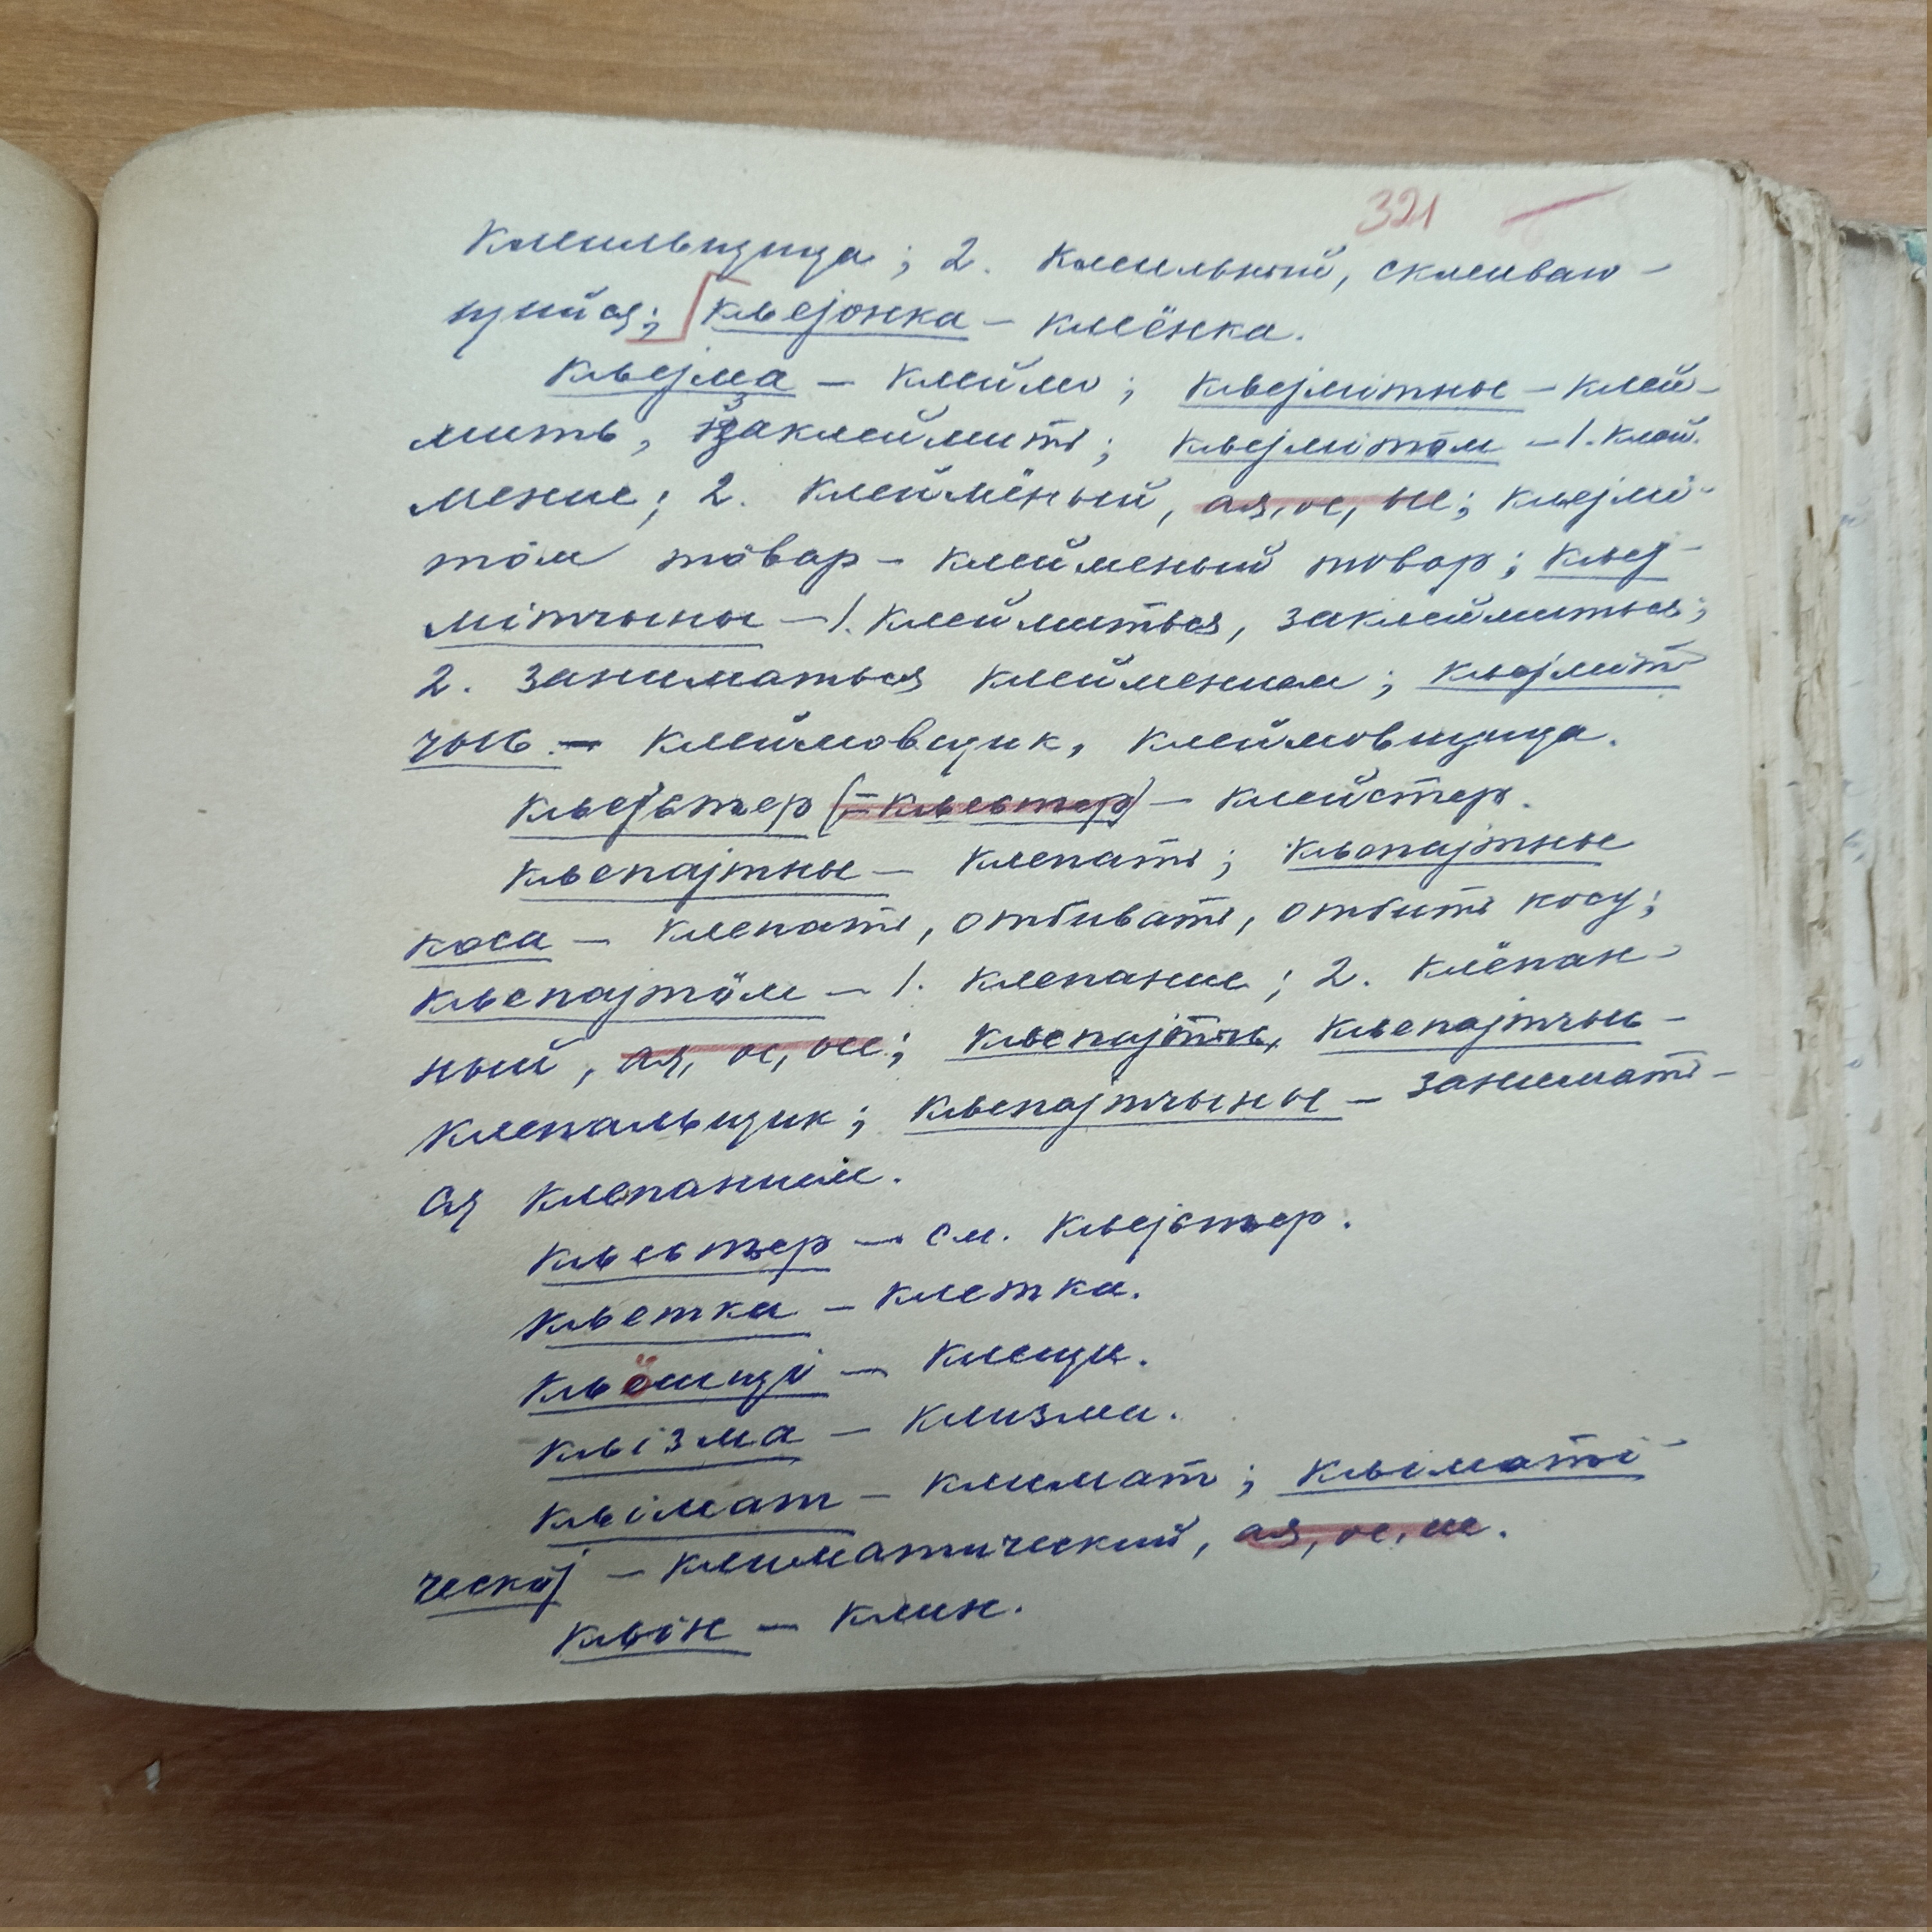 321
клеильщица; 2. клеильный, склеиваю-
щийся; кԉејонка – клеёнка.
кԉејма – клеймо; кԉејмітны – клей-
мить, заклеймить; кԉејмітӧм – 1. клей-
мение; 2. клеймёный, ая, ое, ые; кԉејмі-
тӧм тӧвар – клейменый товар; кԉеј-
мітчыны – 1. клеймиться, заклеймиться;
2. заниматься клеймением; кԉејміт-
чыԍ – клеймовщик, клеймовщица.
кԉејԍтер (=кԉеԍтер) – клейстер.
кԉепајтны – клепать; кԉепајтны
коса – клепать, отбивать, отбить косу;
кԉепајтӧм – 1. клепание; 2. клёпан-
ный, ая, ое, ые; кԉепајтчыԍ –
клепальщик; кԉепајтчыны – занимать-
ся клепанием.
кԉеԍтер – см. кԉејԍтер.
кԉетка – клетка.
кԉӧшщі – клещи.
кԉізма – клизма.
кԉімат – климат; кԉіматі-
ческӧј – климатический, ая, ое, ие.
кԉін – клин.